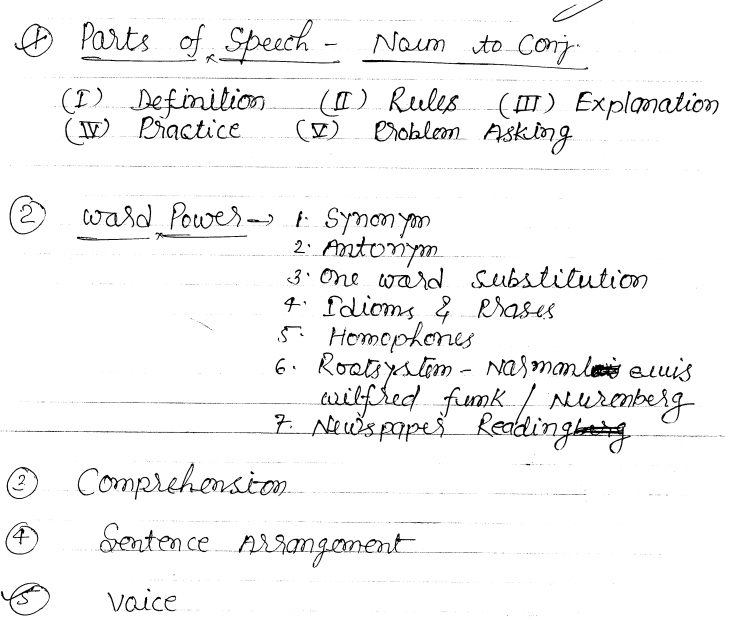 ① Parts of Speech - Noun to Conj.
(I) Definition (II) Rules (III) Explanation
(IV) Practice (V) Problem Asking
② Ward Power → 1. Synonym
2. Antonym
3. One ward substitution
4. Idioms & Prases
5. Homophones
6. Rootsystem - Narman Lewis
wilfred funk / Nurenberg
7. Newspaper Reading
③ Comprehension
④ Sentence Arrangement
⑤ Voice